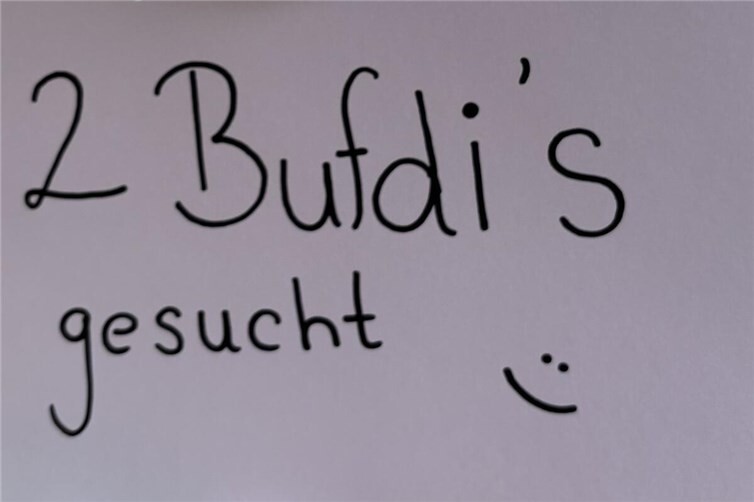 2 Bufdi's
gesucht :)